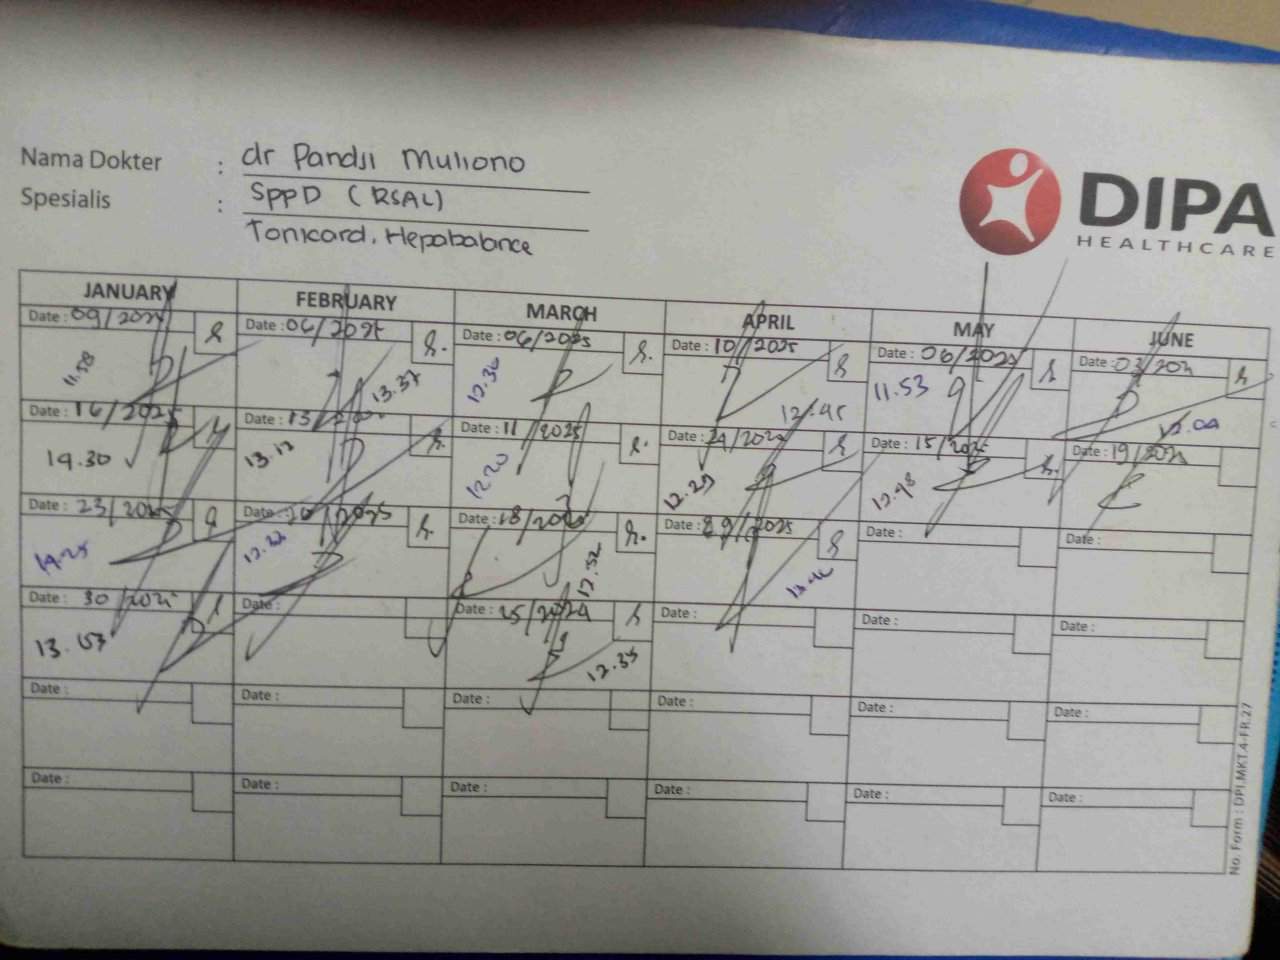 Nama Dokter : dr Pandji Muliono
Spesialis : SppD (RSAL)
Tonicard, Hepabalance
DIPA
HEALTHCARE
JANUARY FEBRUARY MARCH APRIL MAY JUNE
Date : 09/2025 Date : 06/2025 Date : 06/2025 Date : 10/2025 Date : 06/2025 Date : 03/202
11.58 13.37 12.36 12.45 11.53 12.04
Date : 16/2025 Date : 13 Date : 11/2025 Date : 24/202 Date : 15/2025 Date : 19/202
14.30 13.12 12.20 12.29 12.48
Date : 23/2025 Date : 20/2025 Date : 18/202 Date : 29/2025 Date : Date :
14.25 12.22 12.52
Date : 30/202 Date : Date : 25/2024 Date : Date : Date :
13.57 12.35
Date : Date : Date : Date : Date : Date :
Date : Date : Date : Date : Date : Date :
No. Form : DPI.MKT.4-FR.27